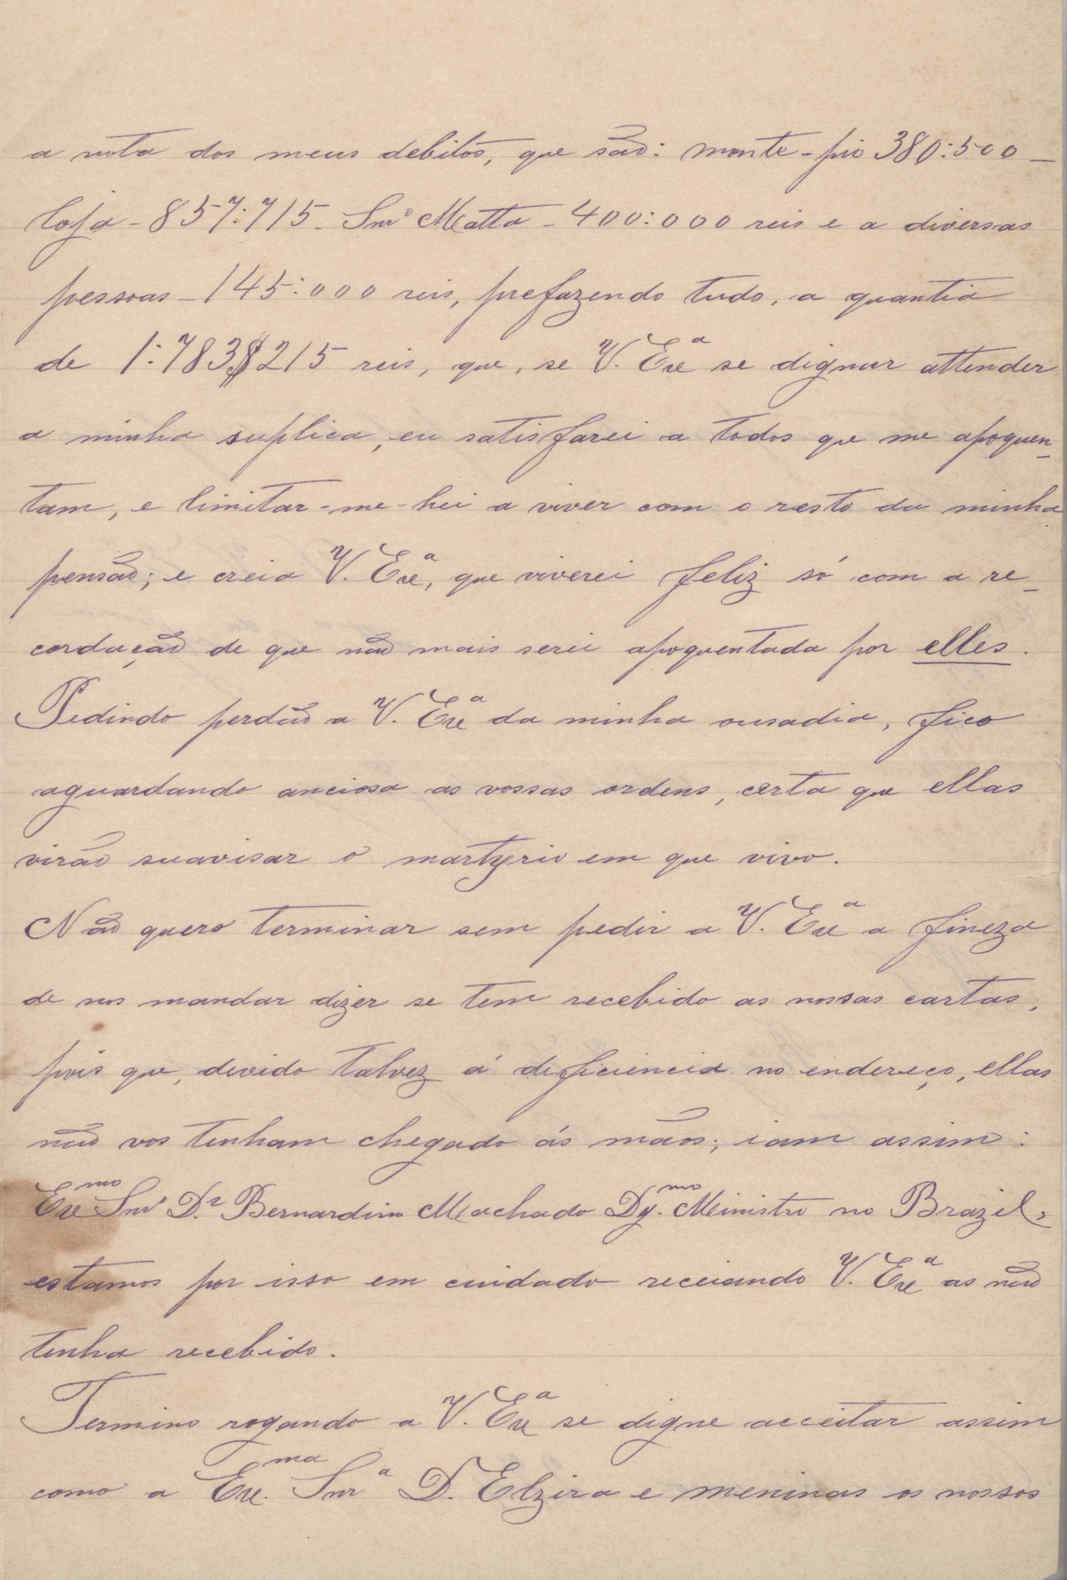 a nota dos meus debitos, que são: monte-pio 380:500 —
loja - 857:715 - Snr. Matta - 400:000 reis e a diversas
pessoas - 145:000 reis, prefazendo tudo, a quantia
de 1:783$215 reis, que, se V. Exª se dignar attender
a minha suplica, eu satisfarei a todos que me apoquen-
tam, e limitar-me-hei a viver com o resto da minha
pensão; e creia V. Exª, que viverei feliz só com a re-
cordação de que não mais serei apoquentada por elles.
Pedindo perdão a V. Exª da minha ousadia, fico
aguardando anciosa as vossas ordens, certa que ellas
virão suavisar o martyrio em que vivo.
Não quero terminar sem pedir a V. Exª a fineza
de nos mandar dizer se tem recebido as nossas cartas,
pois que, devido talvez á deficiencia no endereço, ellas
não vos tenham chegado ás mãos; iam assim:
Exmo Snr. Dr. Bernardino Machado Dg.mo Ministro no Brazil,
estamos por isso em cuidado receiando V. Exª as não
tenha recebido.
Termino rogando a V. Exª se digne acceitar assim
como a Ex.ma Snrª D. Elzira e meninas os nossos